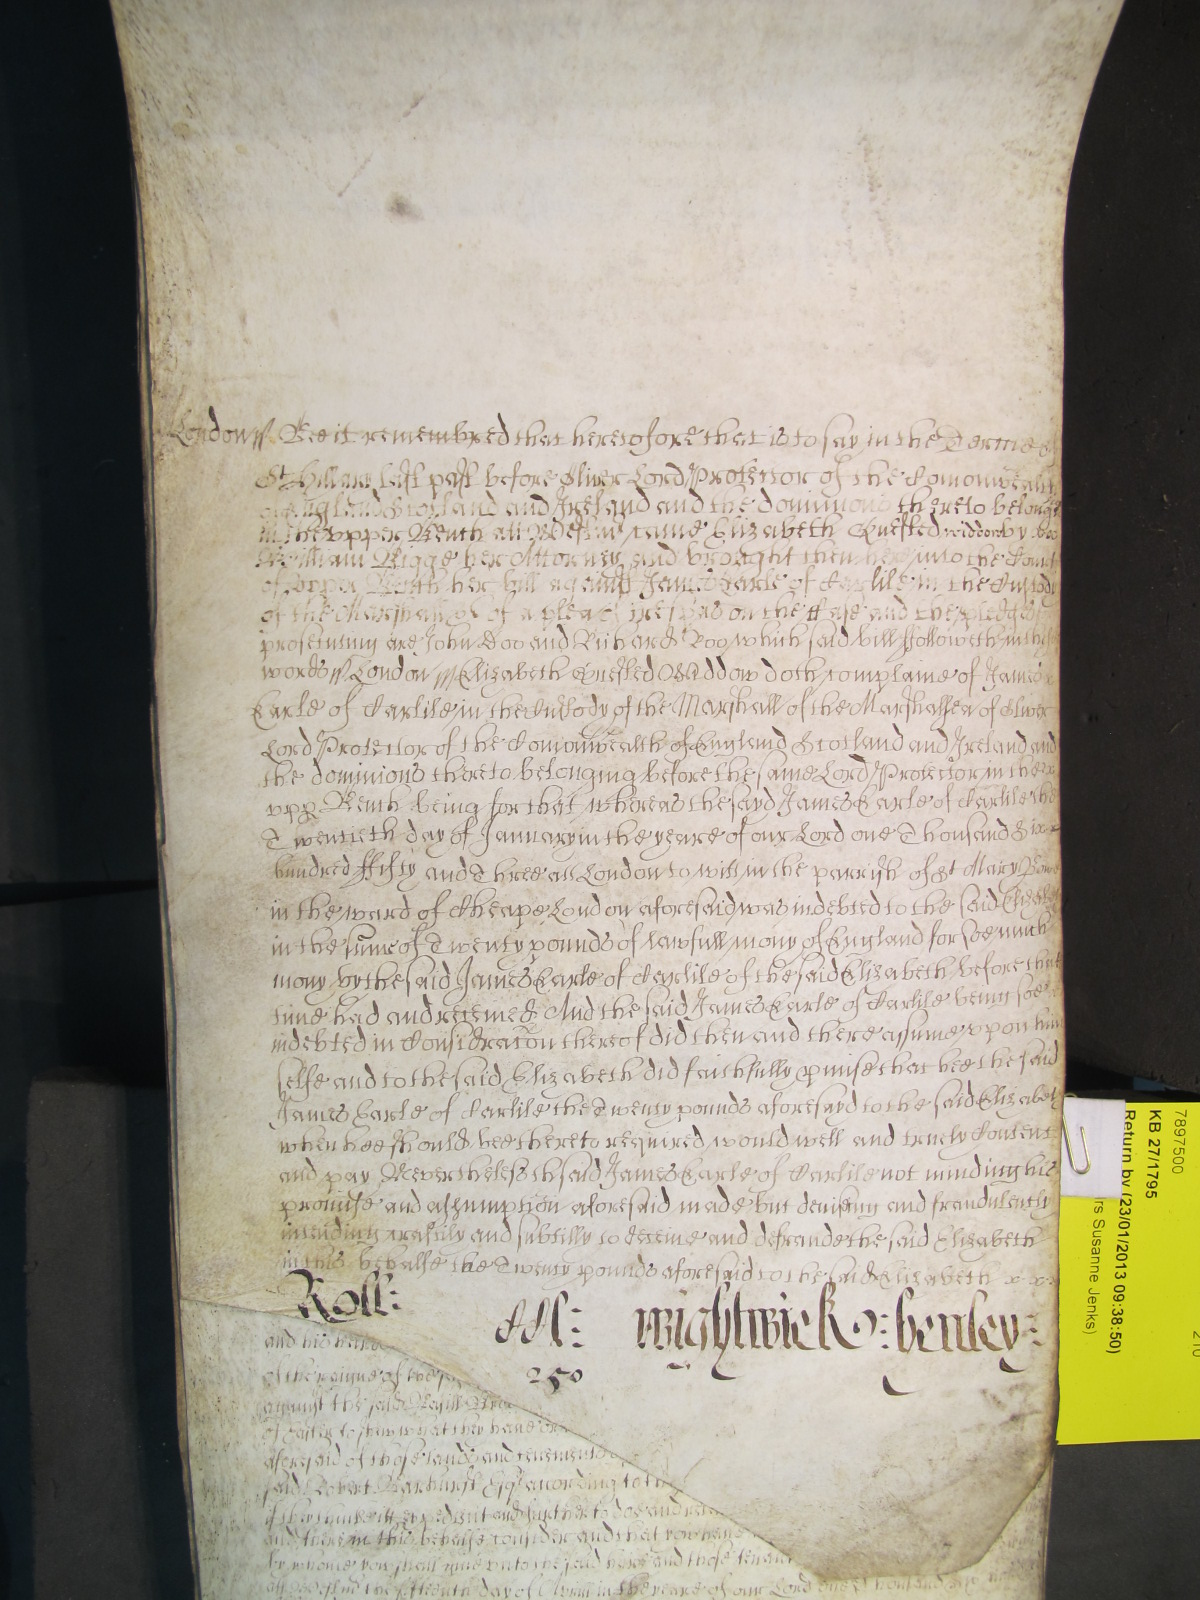 London ss Bee it remembred that heretofore that is to say in the Terme of
St Hillary last past before Oliver Lord Protector of the Comonwealth
of England Scotland and Ireland and the dominions thereto belong
in the upper Bench att Westmr came Elizabeth Quested widdow by
William Bigge her Attorney and brought then here into the Court
of upper Bench her bill against James Earle of Carlile in the Custody
of the Marshall &c of a plea of trespas on the Case and the pledges
prosecuting are John Doo and Richard Roo which said bill ffolloweth in these
words ss London ss Elizabeth Quested Widdow doth complaine of James
Earle of Carlile in the Custody of the Marshall of the Marshallsea of Oliver
Lord Protector of the Comonwealth of England Scotland and Ireland and
the dominions thereto belonging before the same Lord Protector in the
upp Bench being for that whereas the sayd James Earle of Carlile the
Twentieth day of January in the yeare of our Lord one Thousand Six
hundred ffifty and Three att London to witt in the parrish of St Mary Bowe
in the ward of Cheape London aforesaid was indebted to the said Elizabeth
in the sume of Twenty pounds of lawfull mony of England for soe much
mony by the said James Earle of Carlile of the said Elizabeth before that
time had and received And the said James Earle of Carlile being soe
indebted in Considracon thereof did then and there assume upon him
selfe and to the said Elizabeth did faithfully pmise that hee the said
James Earle of Carlile the Twenty pounds aforesayd to the said Elizabeth
when hee should bee thereto required would well and truely Content
and pay Neverthelesse th said James Earle of Carlile not minding his
promise and assumption aforesaid made but devising and fraudulently
intending craftily and subtilly to deceive and defraude the said Elizabeth
in this behalfe the Twenty pounds aforesaid to the said Elizabeth
Roll:
Wightwick &: henley:
250
and his
of the raigne of the
against the said
of Easter to shew what they have or
aforesaid of those lands and tenements
said Robert Barhurst Esqr according to
expedient and further to doe and
and there in this behalfe consider and that you have
by whome you shall give unto the said notice and those tenant
the fifteenth day of in the yeare of our Lord one Thousand Six
7897500
KB 27/1795
Return by (23/01/2013 09:38:50)
rs Susanne Jenks)
210